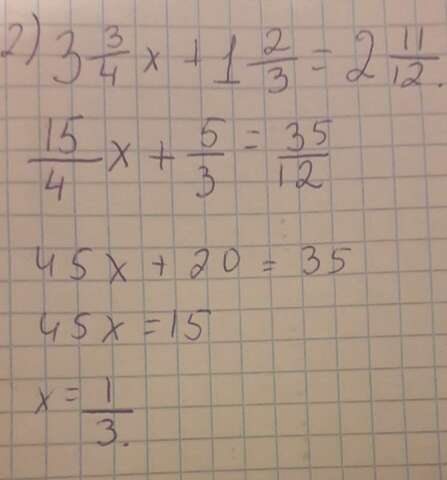 2) 3 3/4 x + 1 2/3 = 2 11/12.
15/4 x + 5/3 = 35/12
45x + 20 = 35
45x = 15
x = 1/3.